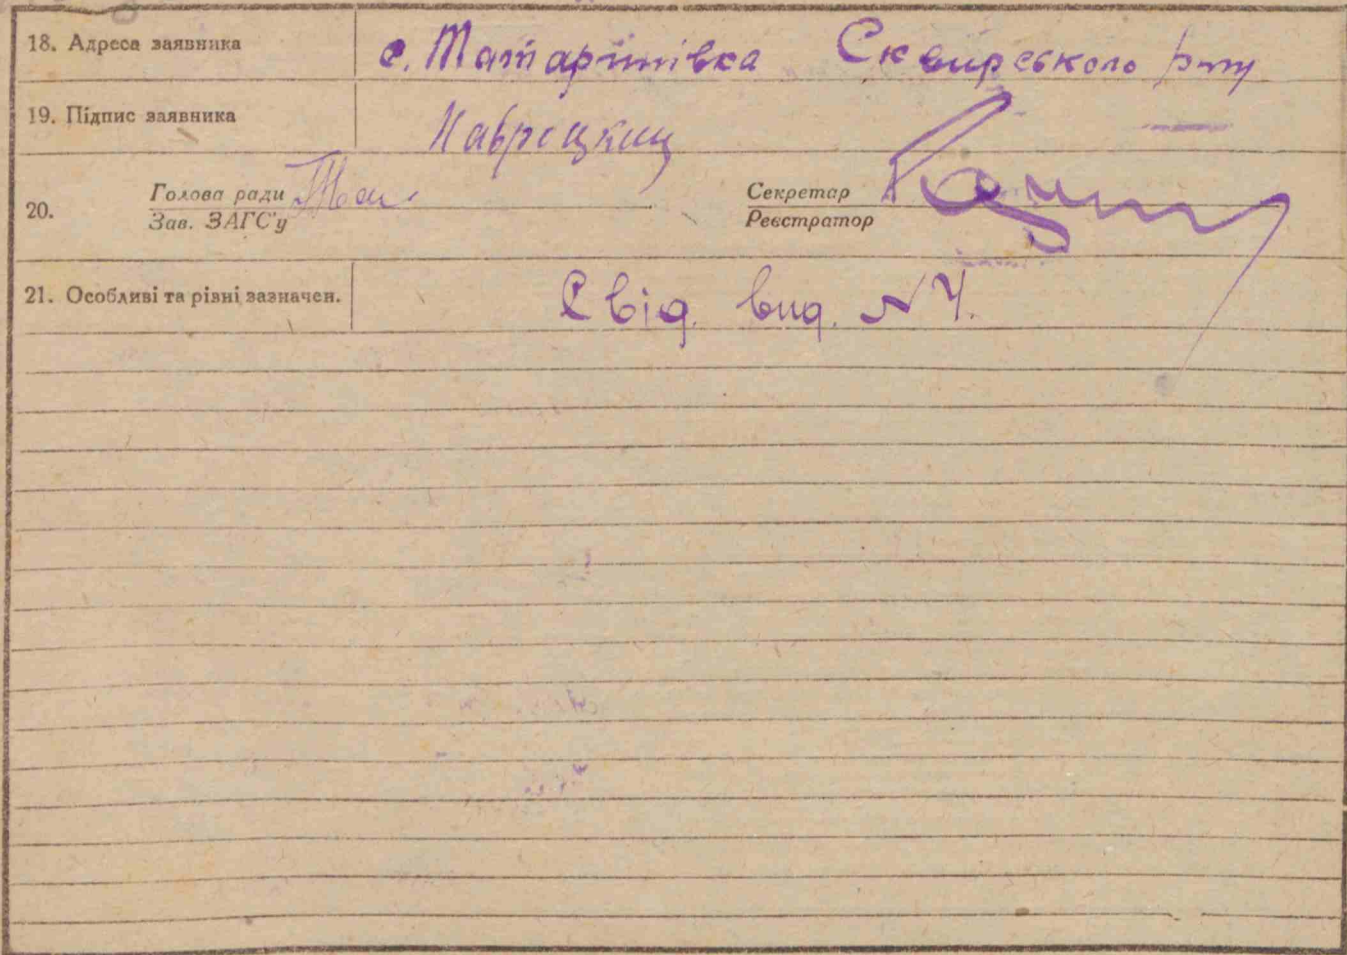 18. Адреса заявника с. Татаринівка Сквирського р-ну
19. Підпис заявника Навроцкий
20. Голова ради Секретар
Зав. ЗАГС'у Реєстратор
21. Особливі та рівні зазначен. Свід. вид. N 4.